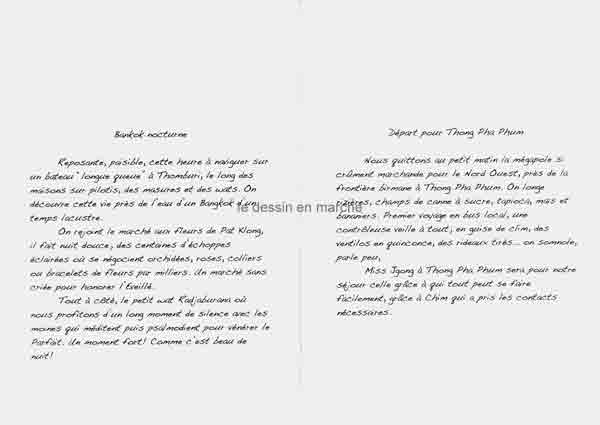 Bankok nocturne
Reposante, paisible, cette heure à naviguer sur
un bateau "longue queue" à Thomburi, le long des
maisons sur pilotis, des masures et des wats. On
découvre cette vie près de l'eau d'un Bangkok d'un
temps lacustre.
On rejoint le marché aux fleurs de Pat Klong,
il fait nuit douce, des centaines d'échoppes
éclairées où se négocient orchidées, roses, colliers
ou bracelets de fleurs par milliers. Un marché sans
criée pour honorer l'Eveillé.
Tout à côté, le petit wat Radjaburana où
nous profitons d'un long moment de silence avec les
moines qui méditent puis psalmodient pour vénérer le
Parfait. Un moment fort! Comme c'est beau de
nuit!
Départ pour Thong Pha Phum
Nous quittons au petit matin la mégapole si
crûment marchande pour le Nord Ouest, près de la
frontière birmane à Thong Pha Phum. On longe
rizières, champs de canne à sucre, tapioca, maïs et
bananiers. Premier voyage en bus local, une
contrôleuse veille à tout, en guise de clim, des
ventilos en quinconce, des rideaux tirés... on somnole,
parle peu,
Miss Jgong à Thong Pha Phum sera pour notre
séjour celle grâce à qui tout peut se faire
facilement, grâce à Chim qui a pris les contacts
nécessaires.
le dessin en marche